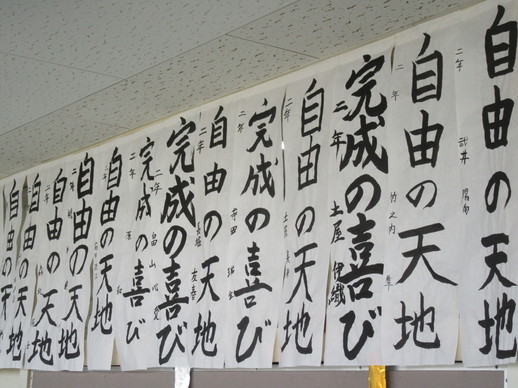 自由の天地
二年
武井 陽向
自由の天地
二年
竹之内
完成の喜び
二年
土屋 伊織
自由の天地
二年
完成の喜び
二年
寺田
自由の天地
二年
友喜
完成の喜び
二年
畠山
完成の喜び
二年
自由の天地
二年
自由の天地
二年
自由の天地
二年
自由の天地
二年
自由の天地